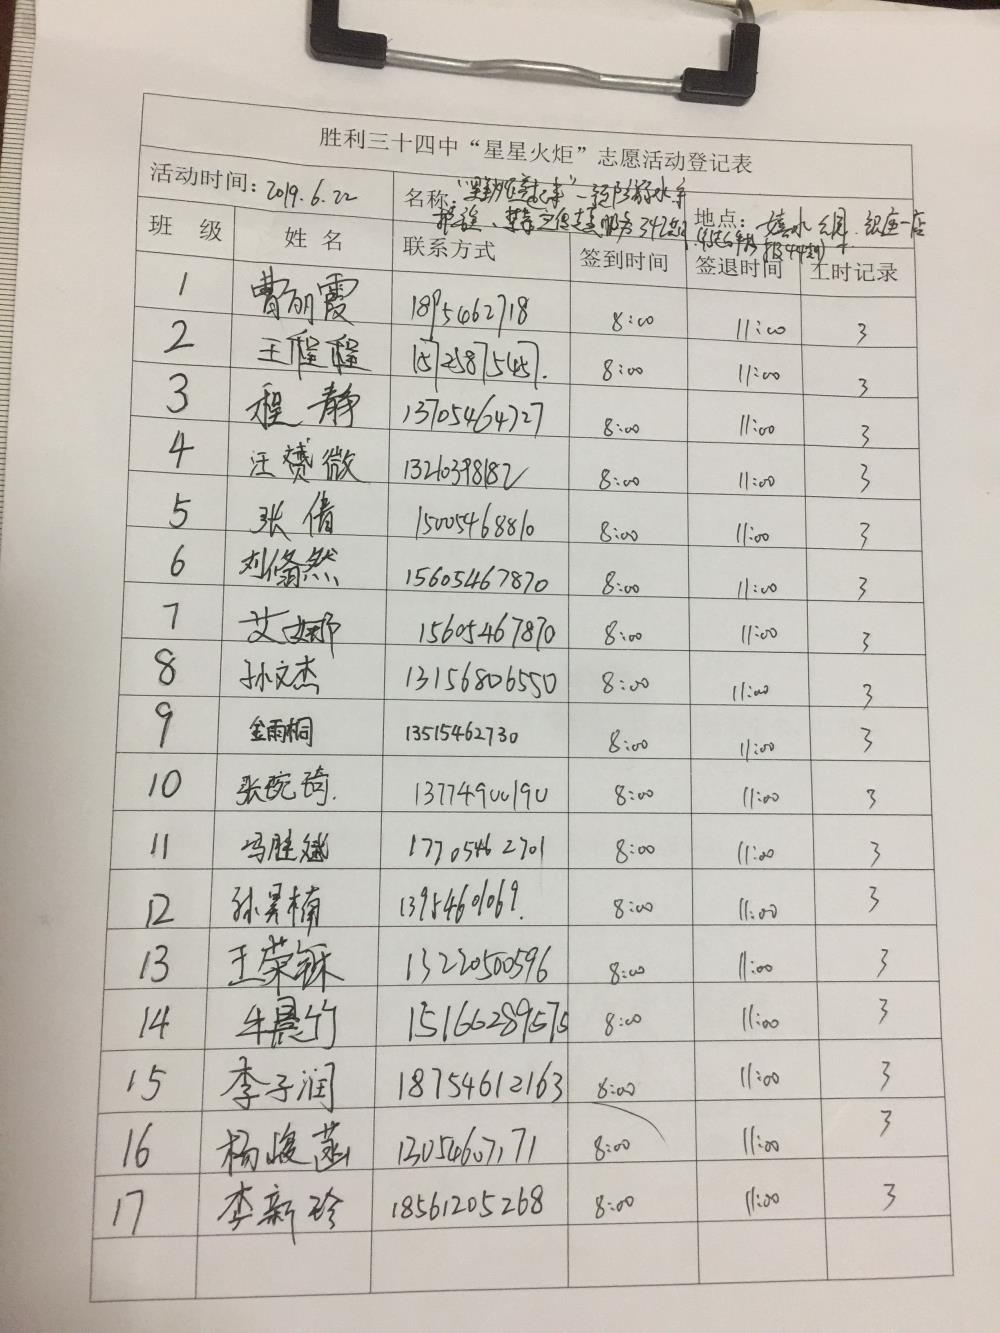 胜利三十四中“星星火炬”志愿活动登记表
活动时间: 2019.6.22 名称: 地点:
班 级 姓 名 联系方式 签到时间 签退时间 工时记录
1 曹丽霞 1895462718 8:00 11:00 3
2 王程程 15725875457. 8:00 11:00 3
3 程静 13705464727 8:00 11:00 3
4 汪赟微 13210398182 8:00 11:00 3
5 张倩 15005468810 8:00 11:00 3
6 刘翛然 15605467870 8:00 11:00 3
7 艾娜 15605467870 8:00 11:00 3
8 孙文杰 13156806550 8:00 11:00 3
9 金雨桐 13515462730 8:00 11:00 3
10 张琬琦. 13774900190 8:00 11:00 3
11 冯胜斌 17705462701 8:00 11:00 3
12 孙昊楠 13954601069. 8:00 11:00 3
13 王荣 13220500596 8:00 11:00 3
14 牛晨竹 15166289575 8:00 11:00 3
15 李子润 18754612163 8:00 11:00 3
16 杨峻菡 13054607171 8:00 11:00 3
17 李新珍 18561205268 8:00 11:00 3